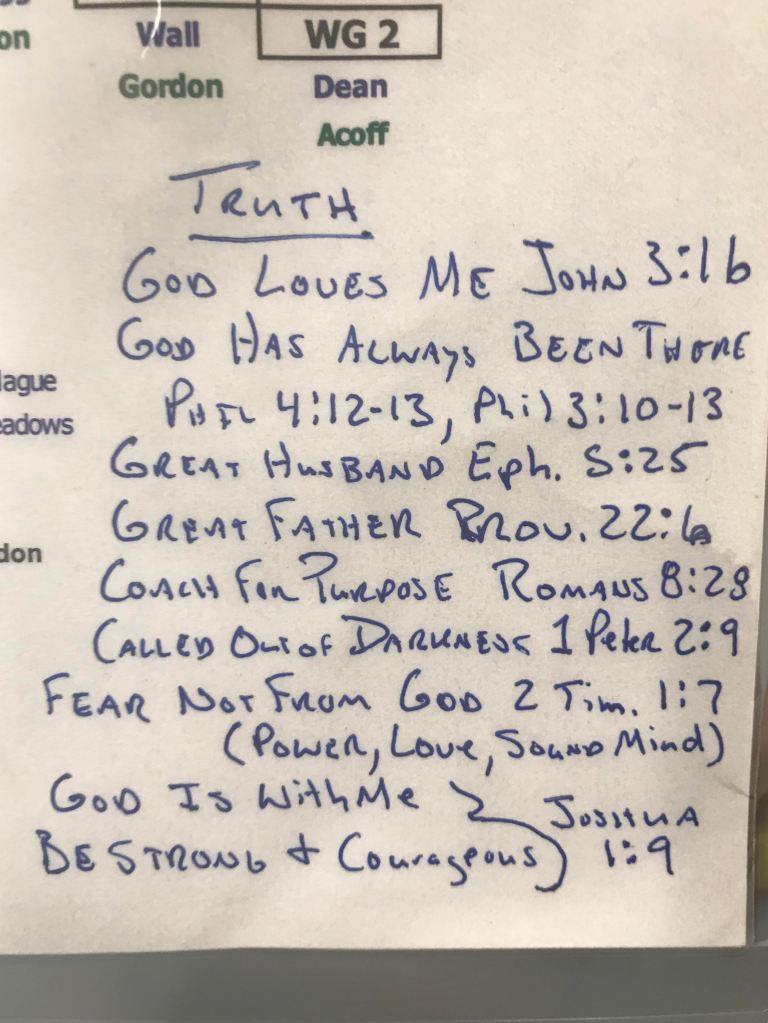 on Wall WG 2
Gordon Dean
Acoff
TRUTH
GOD LOVES ME JOHN 3:16
GOD HAS ALWAYS BEEN THERE
lague
PHIL 4:12-13, Phil 3:10-13
eadows
GREAT HUSBAND Eph. 5:25
GREAT FATHER PROV. 22:6
don
COACH FOR PURPOSE ROMANS 8:28
CALLED OUT OF DARKNESS 1 Peter 2:9
FEAR NOT FROM GOD 2 Tim. 1:7
(POWER, LOVE, SOUND MIND)
GOD IS With Me
JOSHUA
BE STRONG + Courageous 1:9